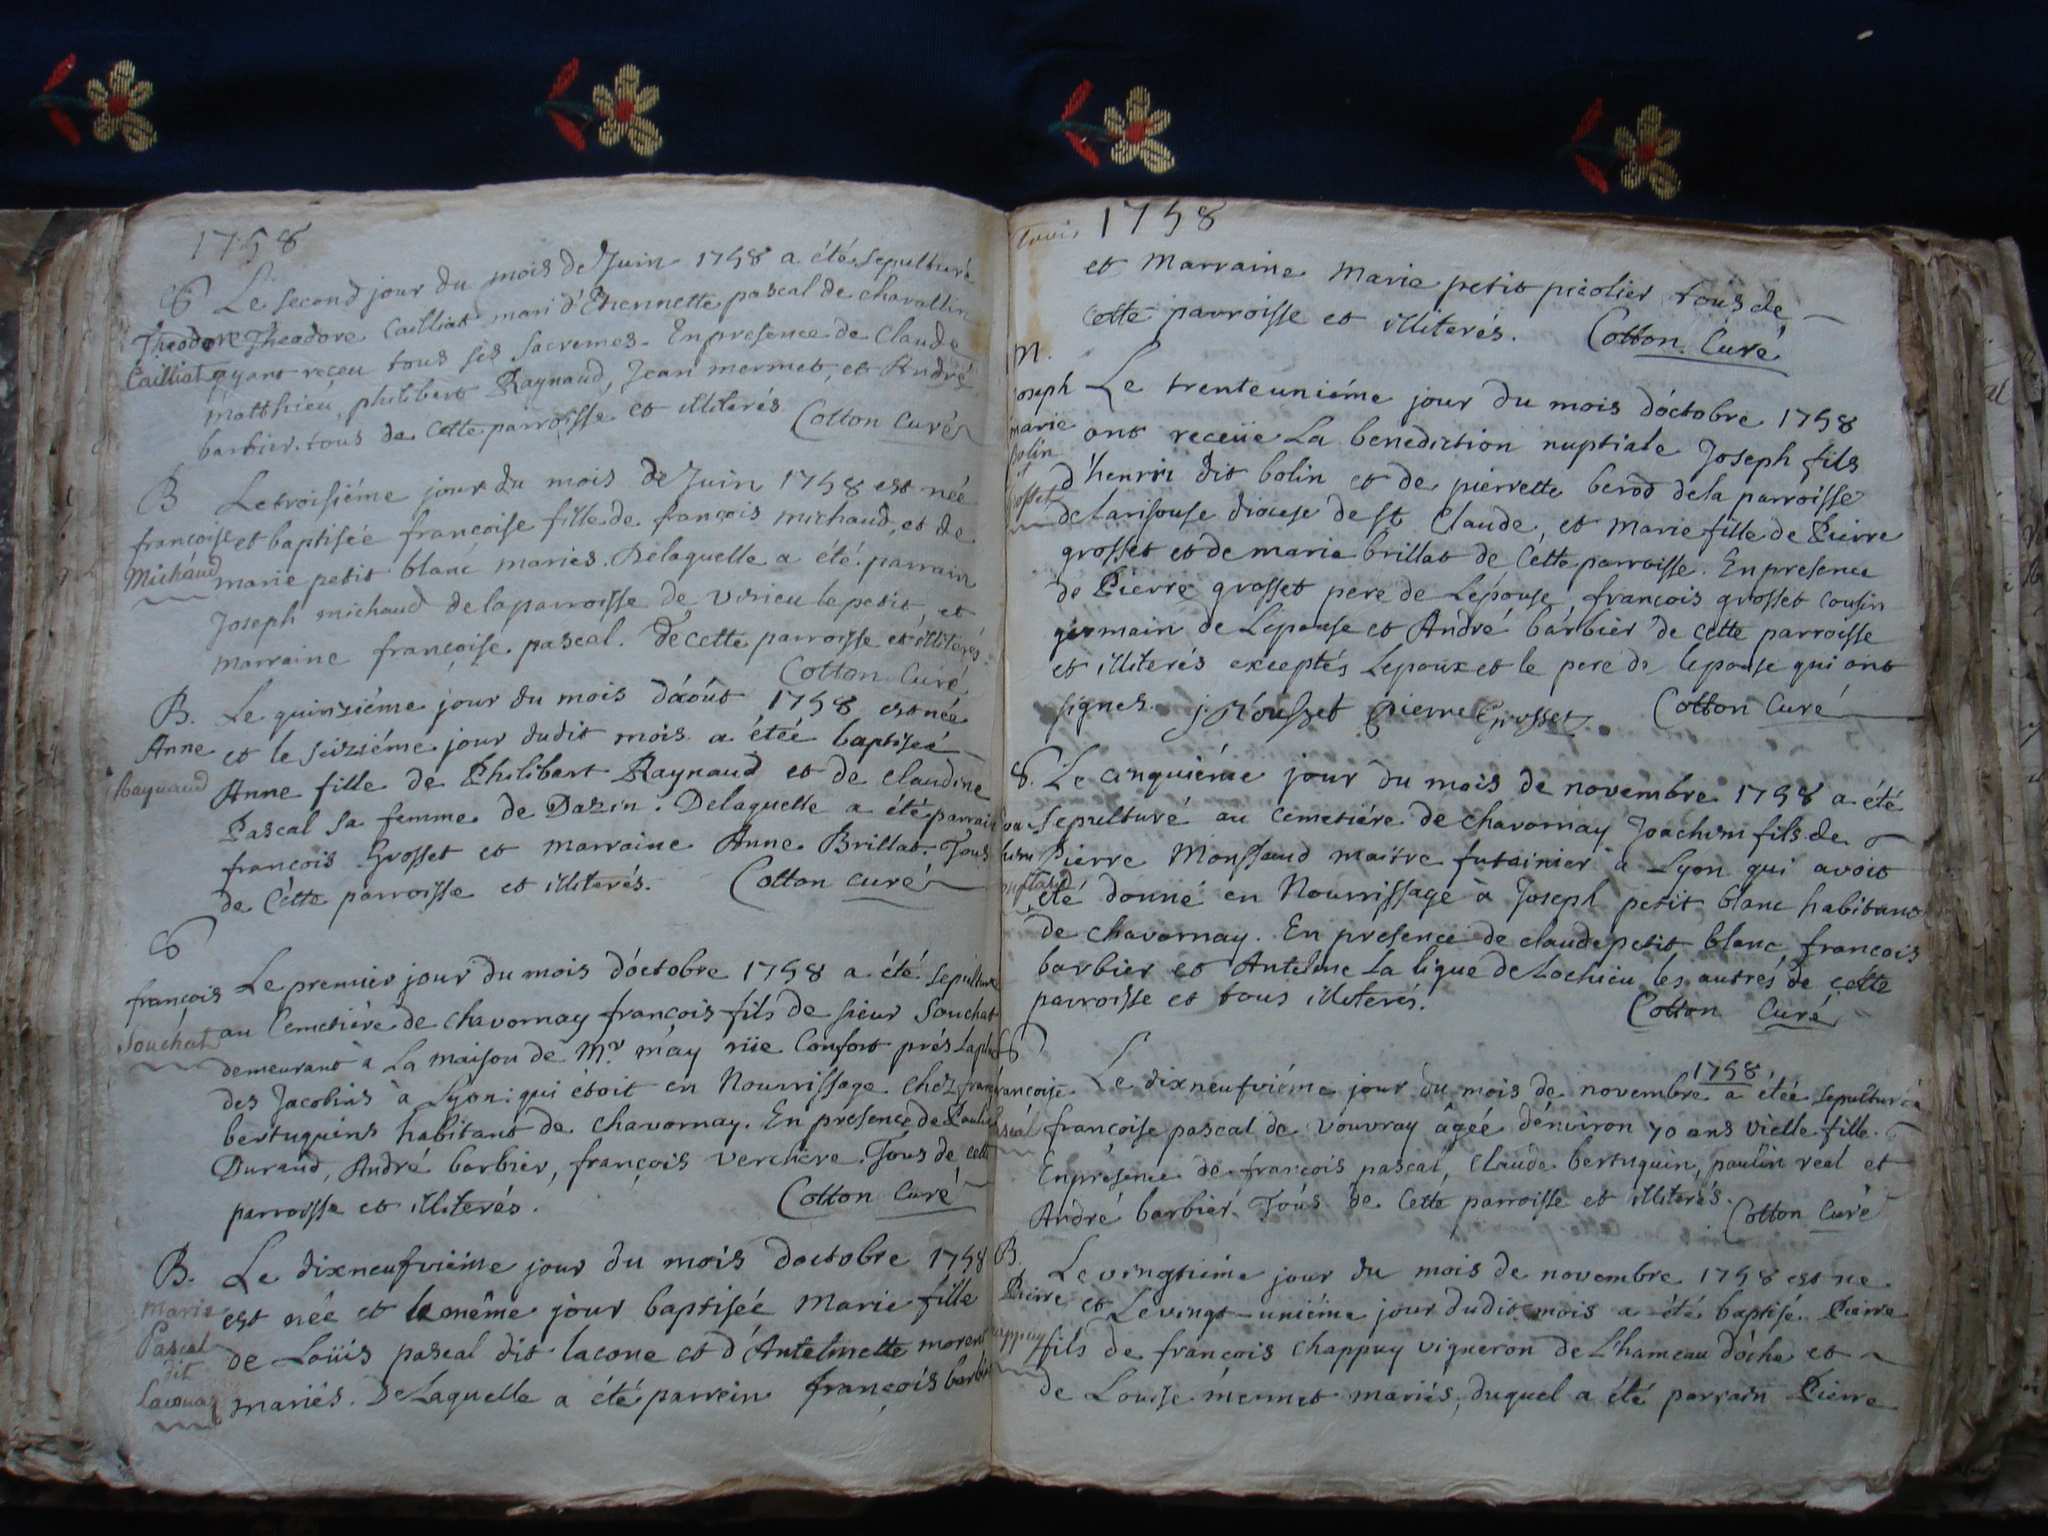 1758
S Le second jour du mois de Juin 1758 a été sepulturé
Theodore Theodore Cailliat mari d'Ethiennette pascal de charallin
Cailliat ayant receu tous ses sacremes. En presence de Claude
matthieu, philibert Raynaud, Jean mermet, et André
barbier. tous de Cette parroisse et illiterés Cotton Curé
B Le troisiéme jour du mois de Juin 1758 est née
françoise et baptisée françoise fille de françois michaud, et de
Michaud marie petit blanc mariés. Delaquelle a été parrain
Joseph michaud de la parroisse de virieu le petit, et
marraine françoise pascal. de cette parroisse et illiterés.
Cotton Curé
B. Le quinziéme jour du mois d'août 1758 est née
Anne et le seiziéme jour dudit mois a étée baptiseé
Raynaud Anne fille de Philibert Raynaud et de claudine
Pascal sa femme de Dazin. Delaquelle a été parrain
françois Grosset et marraine Anne Brillat. Tous
de Cette parroisse et illiterés. Cotton curé
S
françois Le premier jour du mois d'octobre 1758 a été sepulturé
Souchat au Cemetiére de chavornay françois fils de sieur Souchat
demeurant à La maison de Mr. may rüe Confort prés Laplace
des Jacobins à Lyon: qui étoit en Nourrissage chéz fran
bertuquins habitant de chavornay. En presence de Paulin
Durand, André barbier, françois verchere. Tous de cette
parroisse et illiterés. Cotton Curé
B. Le dixneufviéme jour du mois doctobre 1758
marie est née et le même jour baptiseé Marie fille
Pascal de Loüis pascal dit lacone et d'Antelmette morent
dit
Laconaz mariés. De Laquelle a été parrein françois barbie
1758
et Marraine Marie petit picolier tous de
cette parroisse et illiterés. Cotton Curé
M.
Joseph Le trenteuniéme jour du mois d'octobre 1758
marie ont receüe La benediction nuptiale Joseph fils
bolin d'henrri dit bolin et de pierrette berod dela parroisse
grosset de larisouse diocese de st Claude, et marie fille de Pierre
grosset et de marie brillat de Cette parroisse. En presence
de Pierre grosset pere de Lépouse, françois grosset cousin
germain de Lepouse et André barbier de cette parroisse
et illiterés exceptés Lepoux et le pere de lepouse qui ont
signes. Pierre Grosset Cotton Curé
S. Le cinquiéme jour du mois de novembre 1758 a été
sepulturé au cemetiére de chavornay Joachim fils de
Pierre Monstaud maitre futainier a Lyon qui avoit
été donné en Nourrissage à Joseph petit blanc habitant
de chavornay. En presence de claude petit blanc, françois
barbier et Antelme La ligue de Lochieu les autres de cette
parroisse et tous illiterés. Cotton Curé
S 1758
françoise Le dixneufviéme jour du mois de novembre a étée sepulturée
pascal françoise pascal de vouvray âgeé d'énviron 70 ans vielle fille.
En presence de françois pascal, Claude bertuquin, paulin real et
André barbier. Tous de Cette parroisse et illiterés. Cotton Curé
B. Le vingtiéme jour du mois de novembre 1758 est ne
Pierre et Levingt-uniéme jour dudit mois a été baptisé. Pierre
chappuy fils de françois chappuy vigneron de L'hameau dóche et
de Louise mermet mariés, duquel a été parrain Pierre